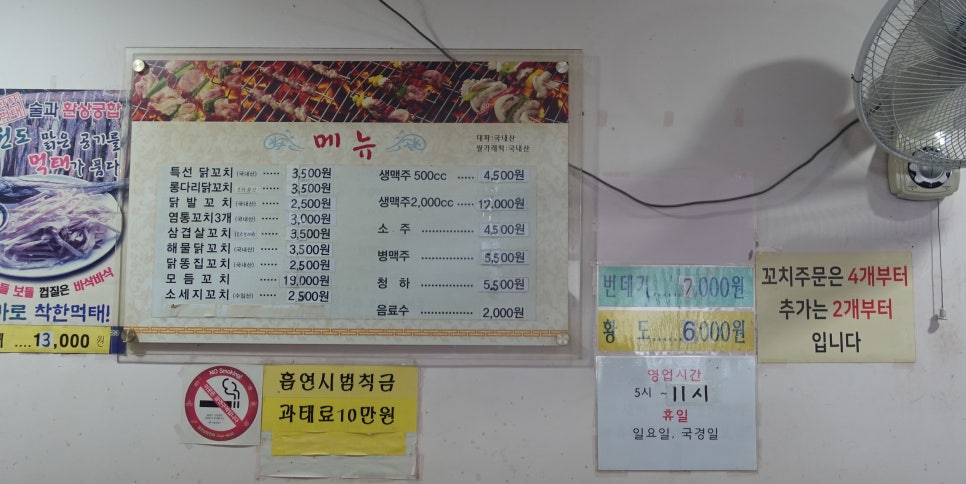 술과 환상궁합
맑은 공기를
먹태가 품다
보들 껍질은 바삭바삭
바로 착한먹태!
....13,000 원
메뉴
대파:국내산
쌀가래떡:국내산
특선 닭꼬치 (국내산) ..... 3,500원
롱다리닭꼬치 3,500원
닭발꼬치 (국내산) ..... 2,500원
염통꼬치3개 (국내산) ..... 3,000원
삼겹살꼬치 ..... 3,500원
해물닭꼬치 (국내산) ..... 3,500원
닭똥집꼬치 (국내산) ..... 2,500원
모듬꼬치 ..... 19,000원
소세지꼬치 (수입산) ..... 2,500원
생맥주 500cc ..... 4,500원
생맥주2,000cc ..... 1?,000원
소 주 ..... 4,500원
병맥주 ..... 5,500원
청 하 ..... 5,500원
음료수 ..... 2,000원
번데기....7,000원
황 도......6,000원
꼬치주문은 4개부터
추가는 2개부터
입니다
영업시간
5시 ~ 11시
휴일
일요일, 국경일
NO Smoking!
흡연시범칙금
과태료10만원